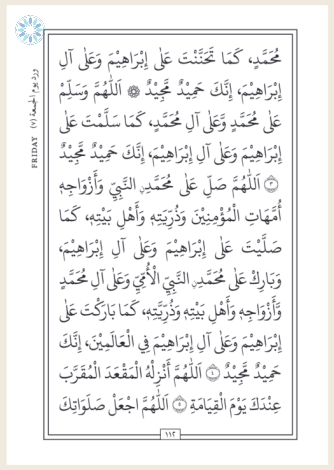 مُحَمَّدٍ، كَمَا تَحَنَّنْتَ عَلٰى إِبْرَاهِيْمَ وَعَلٰى آلِ
إِبْرَاهِيْمَ، إِنَّكَ حَمِيْدٌ مَّجِيْدٌ ۞ اَللّٰهُمَّ وَسَلِّمْ
عَلٰى مُحَمَّدٍ وَّعَلٰى آلِ مُحَمَّدٍ، كَمَا سَلَّمْتَ عَلٰى
إِبْرَاهِيْمَ وَعَلٰى آلِ إِبْرَاهِيْمَ، إِنَّكَ حَمِيْدٌ مَّجِيْدٌ
۝٣ اَللّٰهُمَّ صَلِّ عَلٰى مُحَمَّدِنِ النَّبِيِّ وَأَزْوَاجِهٖ
أُمَّهَاتِ الْمُؤْمِنِيْنَ وَذُرِّيَّتِهٖ وَأَهْلِ بَيْتِهٖ، كَمَا
صَلَّيْتَ عَلٰى إِبْرَاهِيْمَ وَعَلٰى آلِ إِبْرَاهِيْمَ،
وَبَارِكْ عَلٰى مُحَمَّدِنِ النَّبِيِّ الْأُمِّيِّ وَعَلٰى آلِ مُحَمَّدٍ
وَّأَزْوَاجِهٖ وَأَهْلِ بَيْتِهٖ وَذُرِّيَّتِهٖ، كَمَا بَارَكْتَ عَلٰى
إِبْرَاهِيْمَ وَعَلٰى آلِ إِبْرَاهِيْمَ فِي الْعَالَمِيْنَ، إِنَّكَ
حَمِيْدٌ مَّجِيْدٌ ۝٤ اَللّٰهُمَّ أَنْزِلْهُ الْمَقْعَدَ الْمُقَرَّبَ
عِنْدَكَ يَوْمَ الْقِيَامَةِ ۝٥ اَللّٰهُمَّ اجْعَلْ صَلَوَاتِكَ
١١٢
ورد يوم الجمعة (٧) FRIDAY